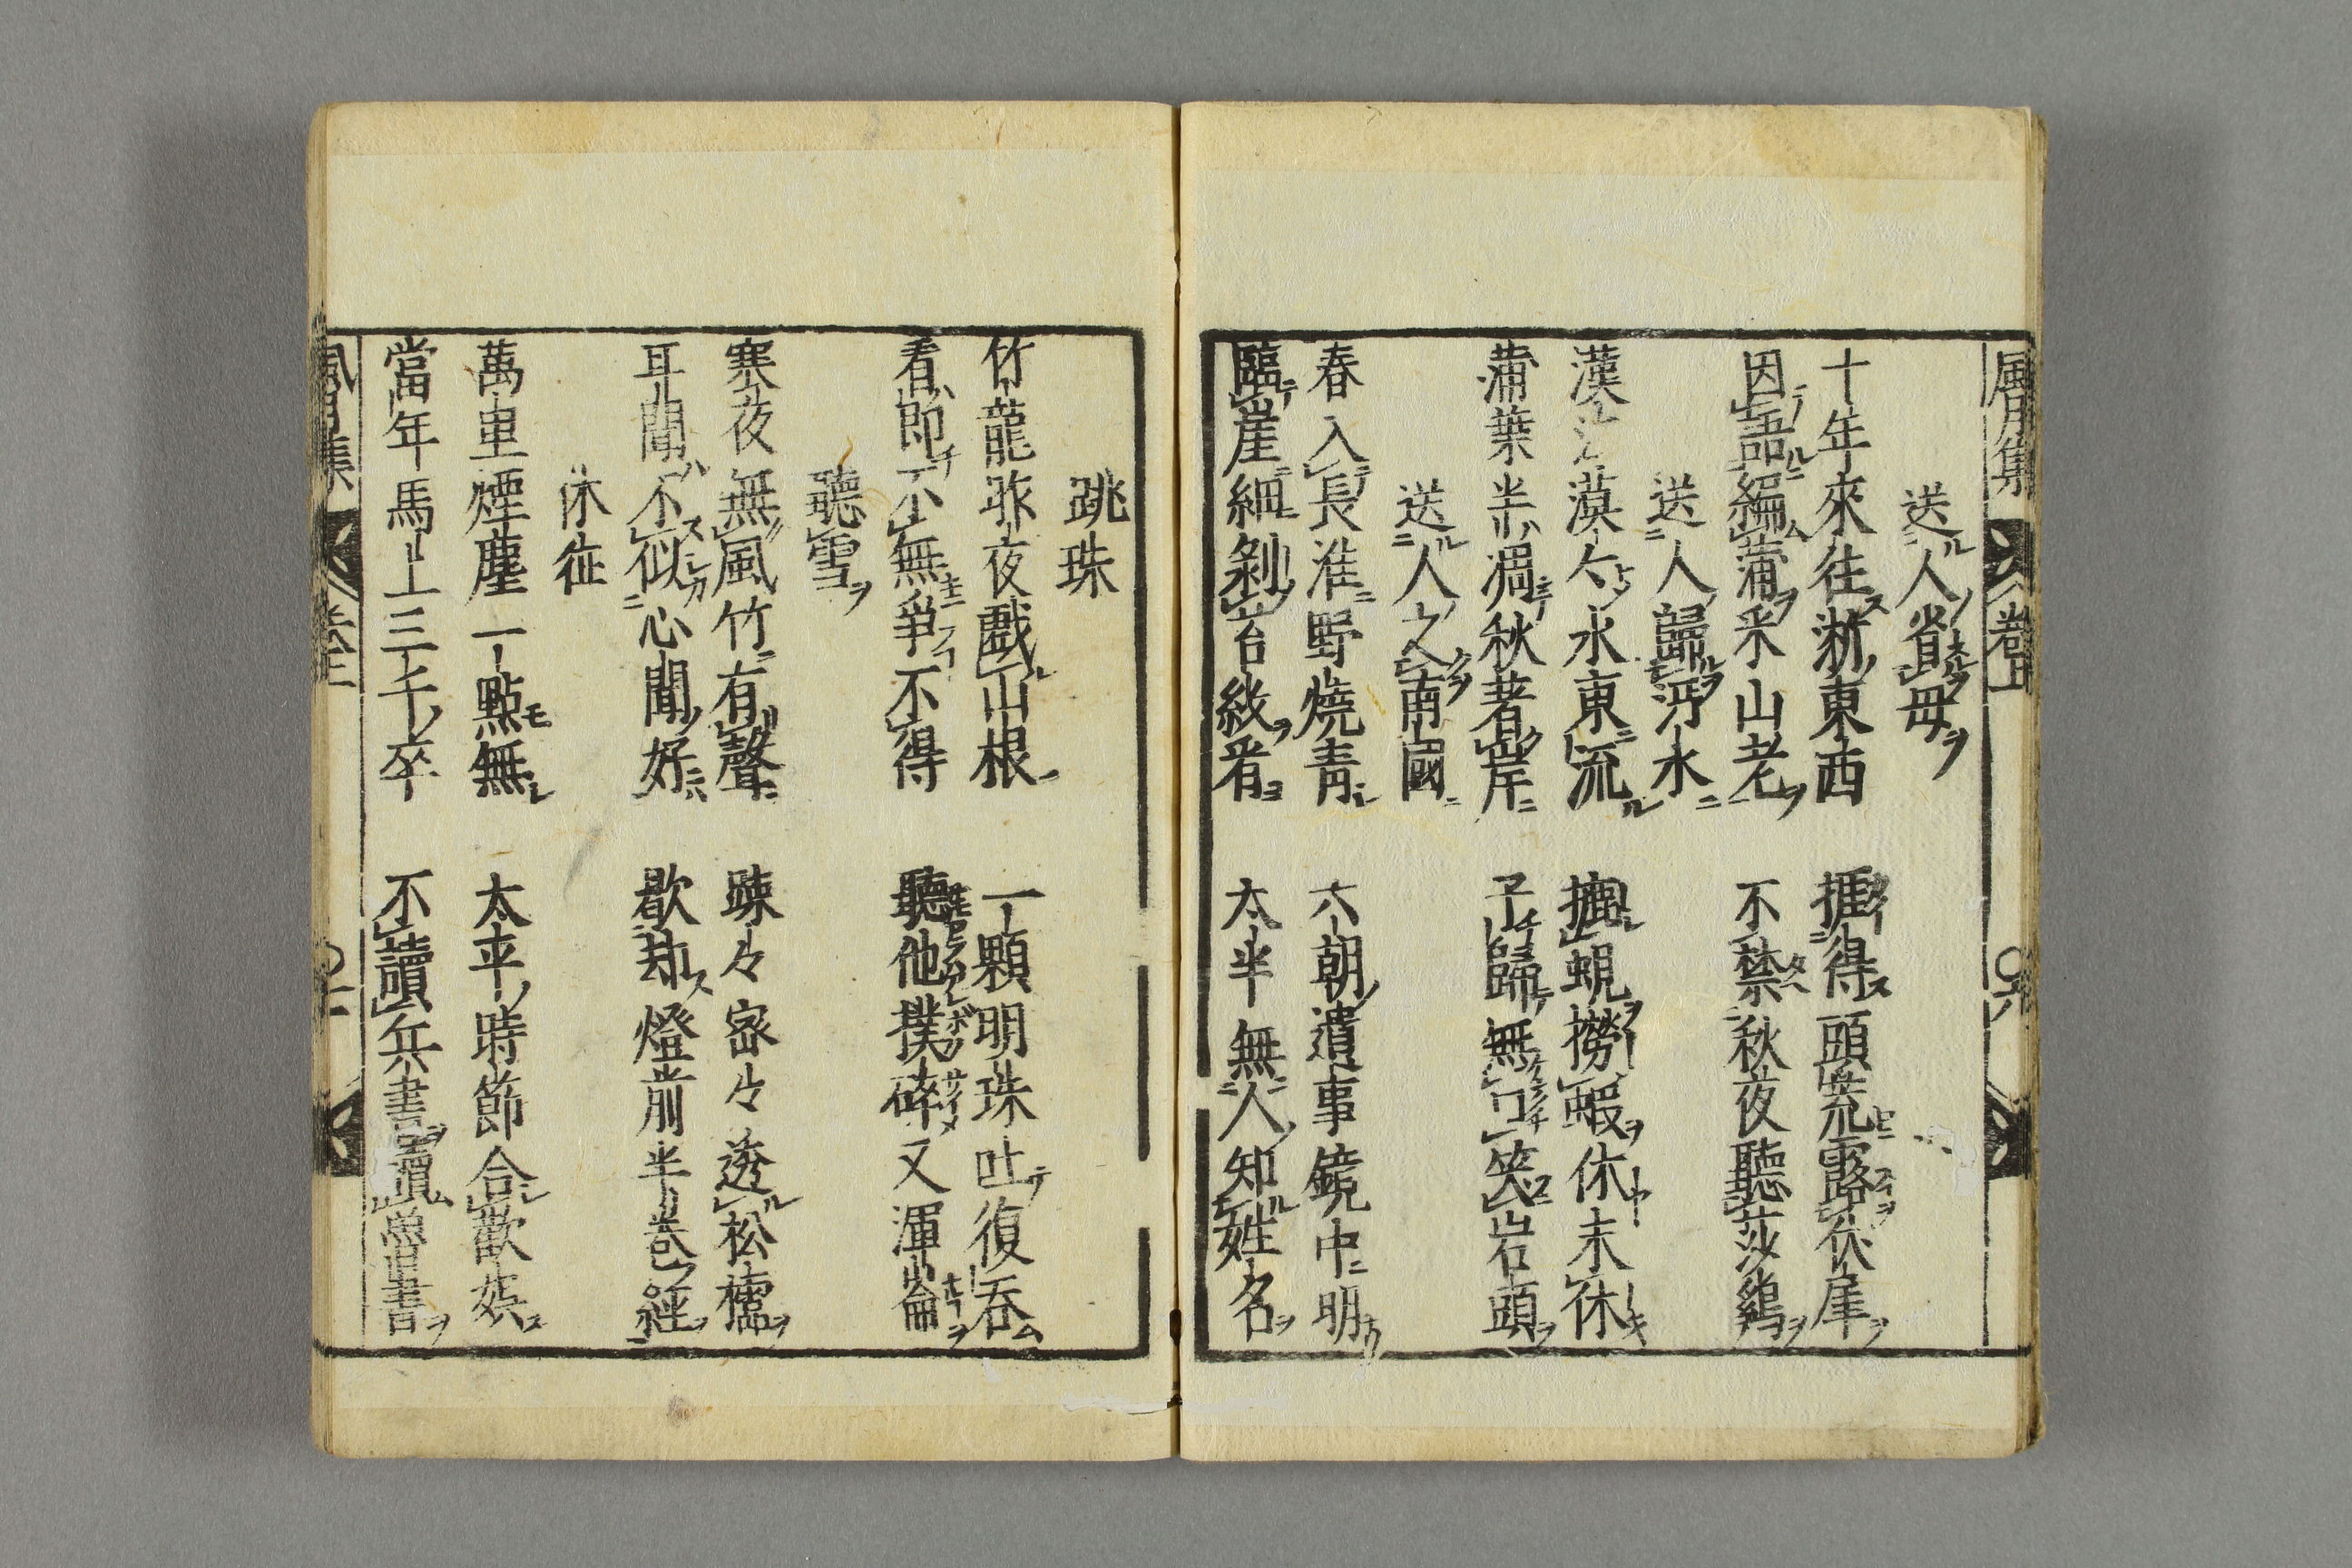 風月集 卷上 〇六
送人省母
十年來往淛東西 捱得頭荒露伏犀
因語編蒲米山老 不禁秋夜聽莎鷄
送人歸沔水
漢江漠々水東流 摝蜆撈蝦休未休
蒲葉半凋秋著岸 子歸無口笑岩頭
送人之南國
春入長淮野燒青 六朝遺事鏡中明
臨崖細剝苔紋看 太半無人知姓名
跳珠
竹龍昨夜戲山根 一顆明珠吐復吞
看即不無爭不得 聽他撲碎又渾崙
聽雪
寒夜無風竹有聲 踈々密々透松櫺
耳聞不似心聞好 歇却燈前半卷經
休征
萬里煙塵一點無 太平時節合歡娯
當年馬上三千卒 不讀兵書讀魯書